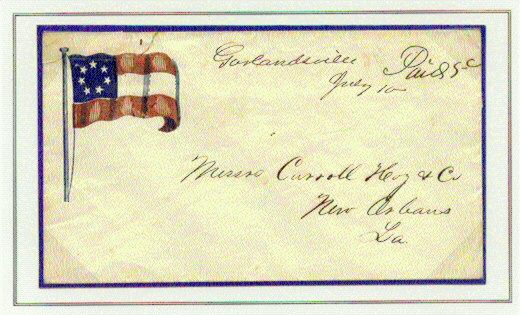 Garlandsville Paid 5c
July 10
Messrs Carroll Hoy & Co
New Orleans
La